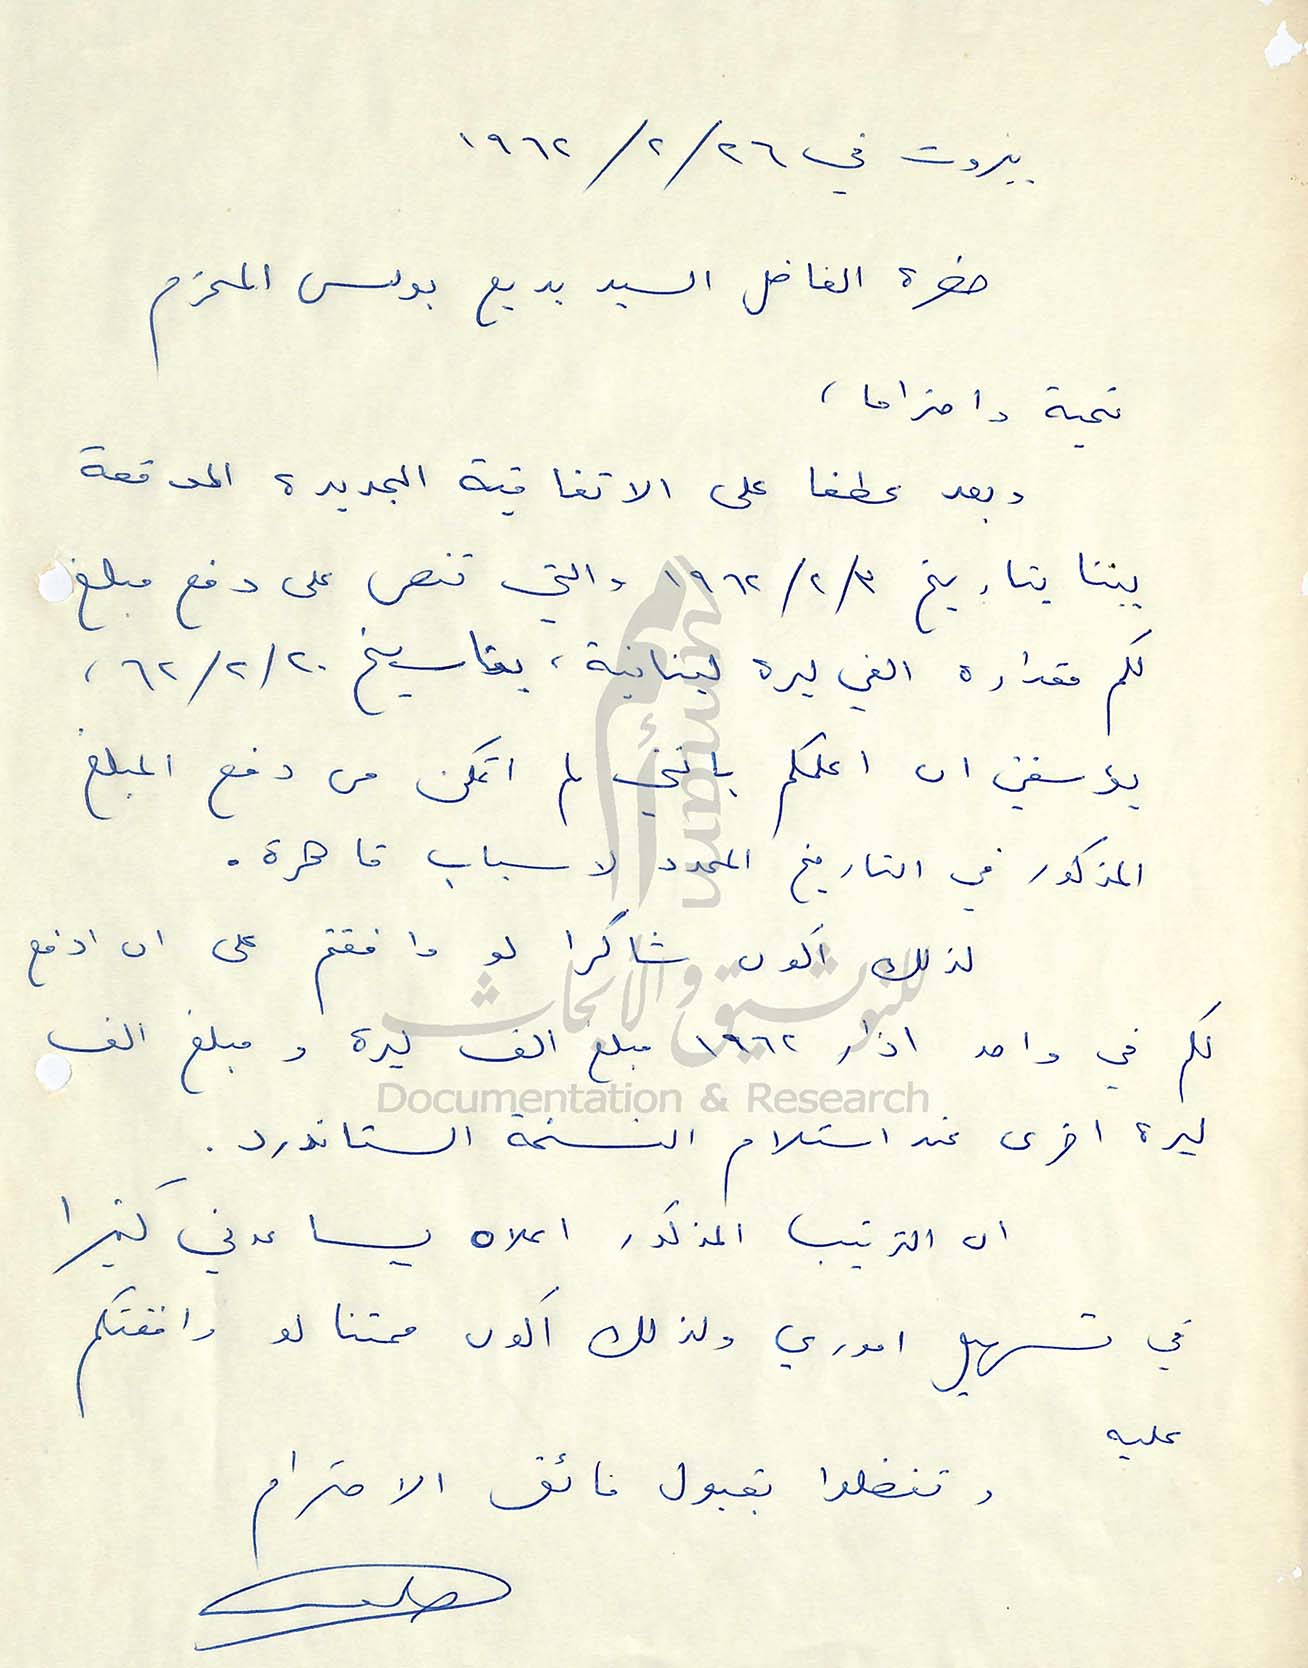 بيروت في ٢٦/٢/١٩٦٢
حضرة الفاضل السيد بديع بولس المحترم
تحية واحتراما،
وبعد عطفا على الاتفاقية الجديدة الموقعة
بيننا بتاريخ ٣/٢/١٩٦٢ والتي تنص على دفع مبلغ
لكم مقداره الفي ليرة لبنانية، بتاريخ ٢٠/٢/٦٢،
يؤسفني ان اعلمكم بانني لم اتمكن من دفع المبلغ
المذكور في التاريخ المحدد لاسباب قاهرة.
لذلك أكون شاكرا لو وافقتم على ان ادفع
لكم في واحد اذار ١٩٦٢ مبلغ الف ليرة و مبلغ الف
ليرة اخرى عند استلام النسخة الستاندرد.
ان الترتيب المذكور اعلاه يساعدني كثيرا
في تسهيل اموري ولذلك أكون ممتنا لو وافقتكم
عليه
وتفضلوا بقبول فائق الاحترام
أمم
umam
للتوثيق والأبحاث
Documentation & Research